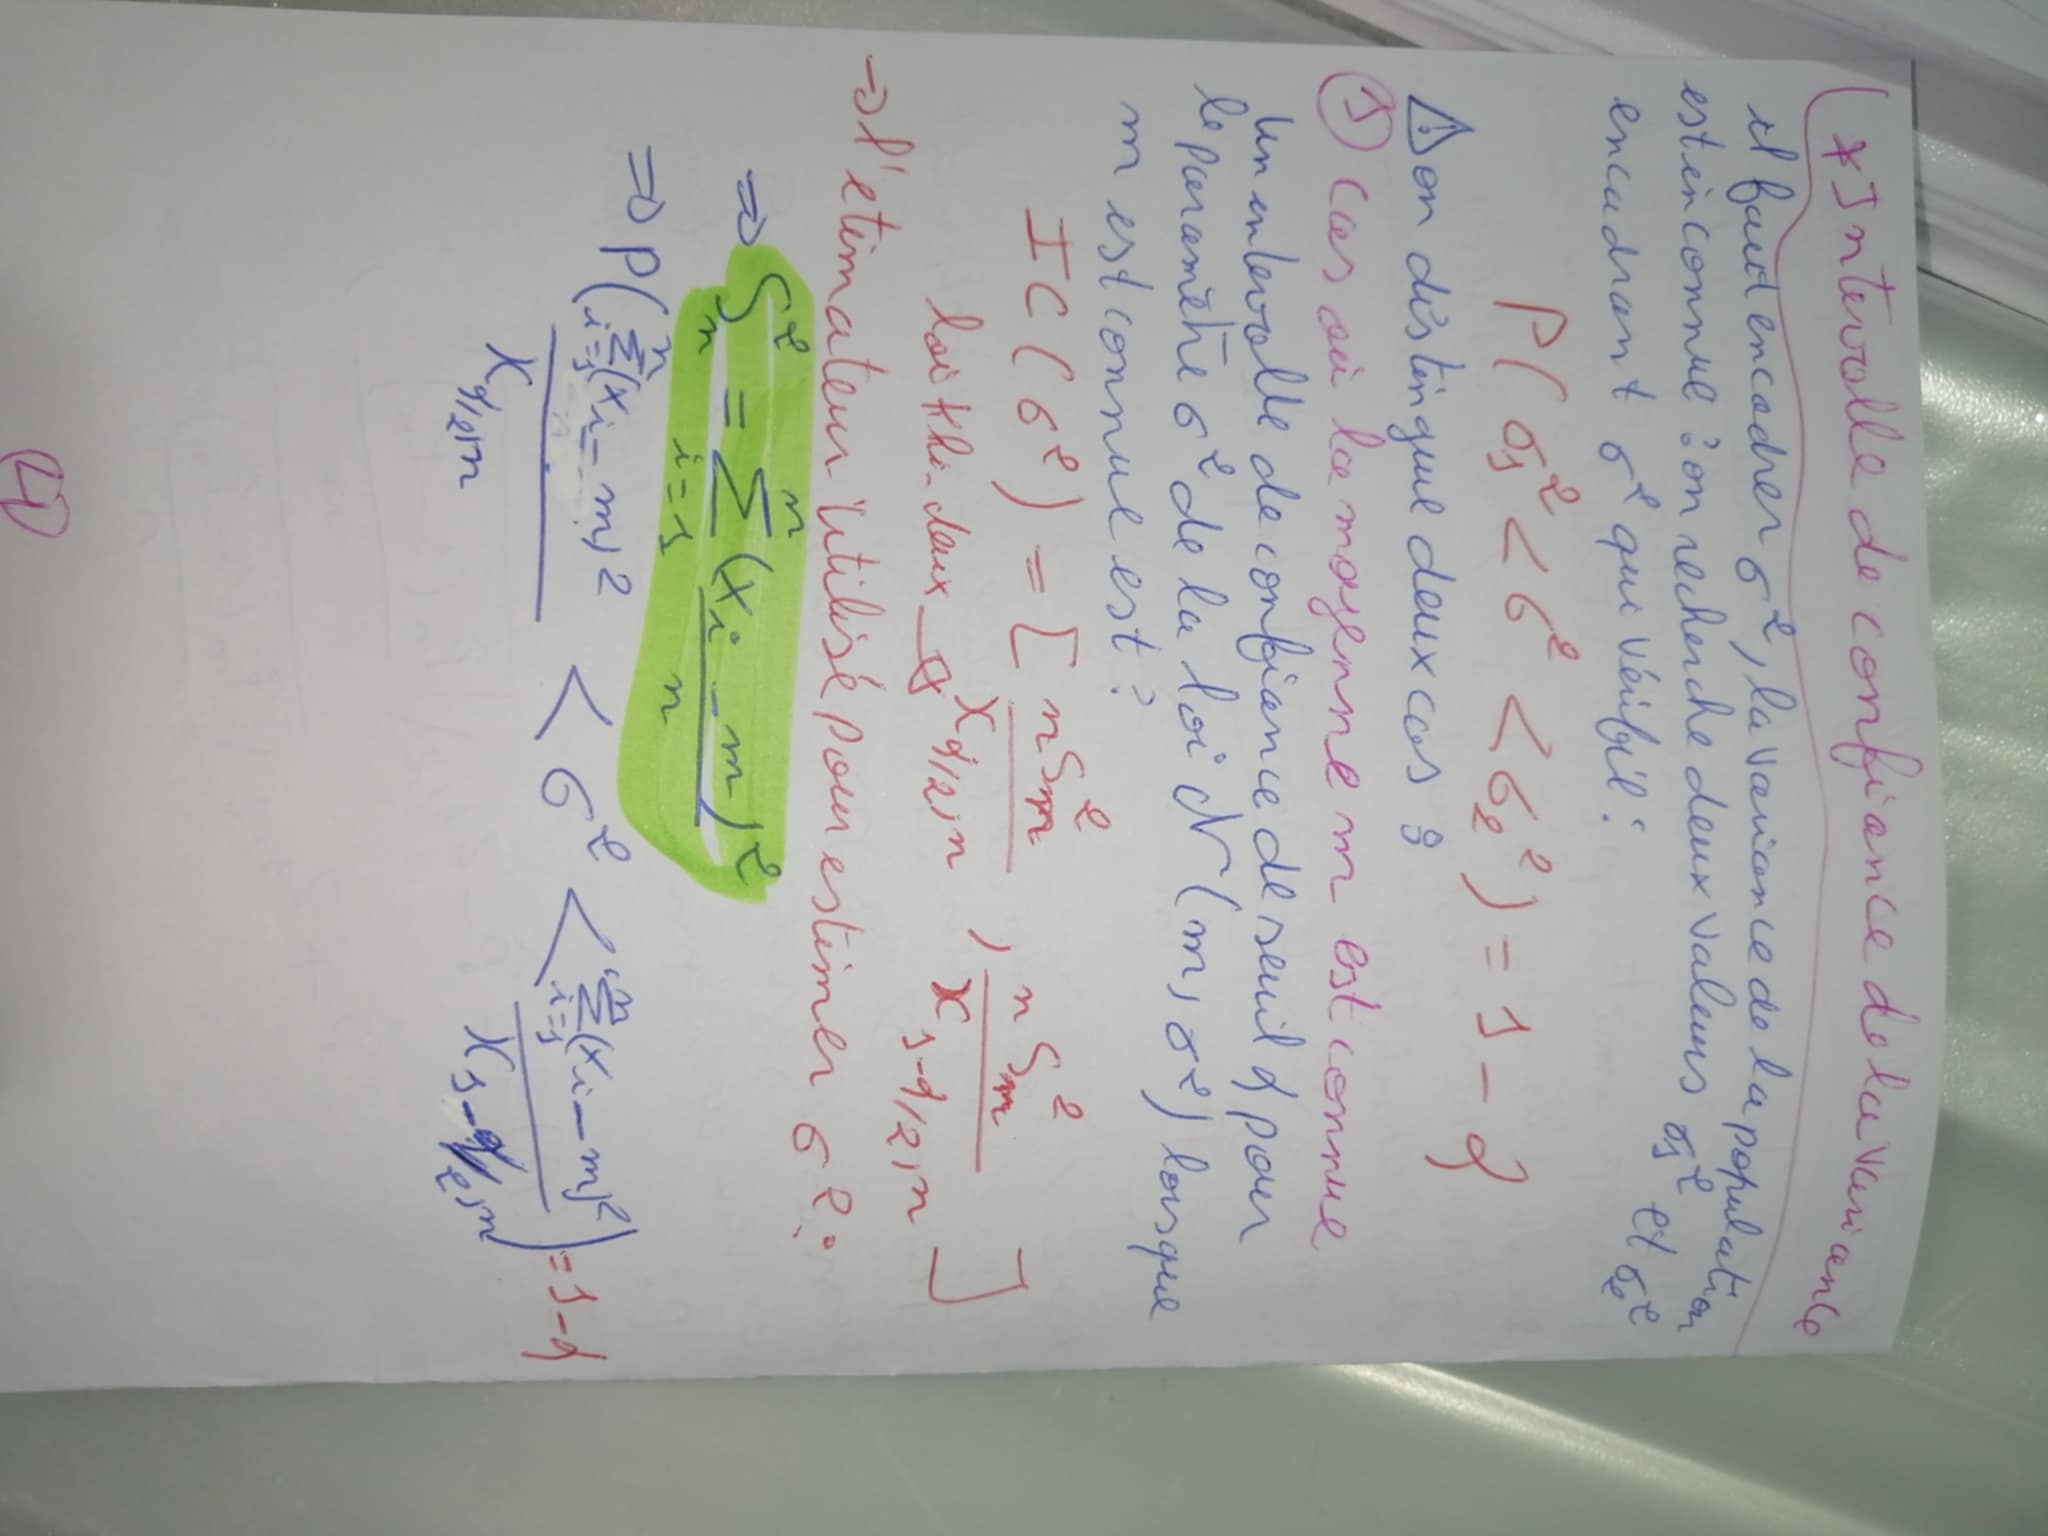 * Intevalle de confiance de la variance
il faut encadrer σ², la variance de la population
est inconnue : on recherche deux valeurs σ₁² et σ₂²
encadrant σ² qui vérifie :
P( σ₁² < σ² < σ₂² ) = 1 - α
⚠ on distingue deux cas :
① cas où la moyenne m est connue
un intevalle de confiance de seuil α pour
le paramètre σ² de la loi N(m, σ²) lorsque
m est connue est :
IC(σ²) = [ nSₘ² / χ α/2,n , nSₘ² / χ 1-α/2,n ]
loi Khi-deux →
→ l'etimateur utilisé pour estimer σ² :
⇒ Sₙ² = Σ_{i=1}^{n} (xi - m)² / n
⇒ P( Σ_{i=1}^{n} (xi - m)² / χ α/2,n < σ² < Σ_{i=1}^{n} (xi - m)² / χ 1-α/2,n ) = 1 - α